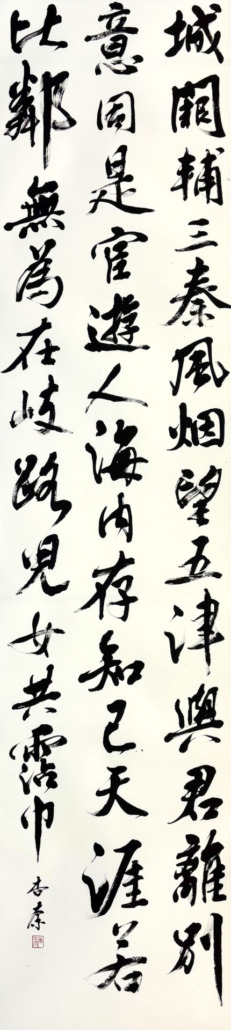 城闕輔三秦風烟望五津與君離別
意同是宦遊人海內存知己天涯若
比鄰無為在岐路兒女共霑巾